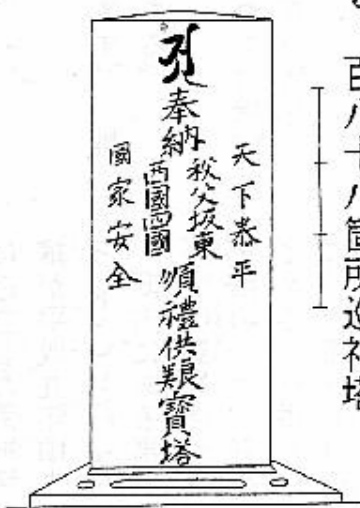 百八十八箇所巡礼塔
天下泰平
奉納
秩父坂東
西國四國
順禮供養寶塔
國家安全